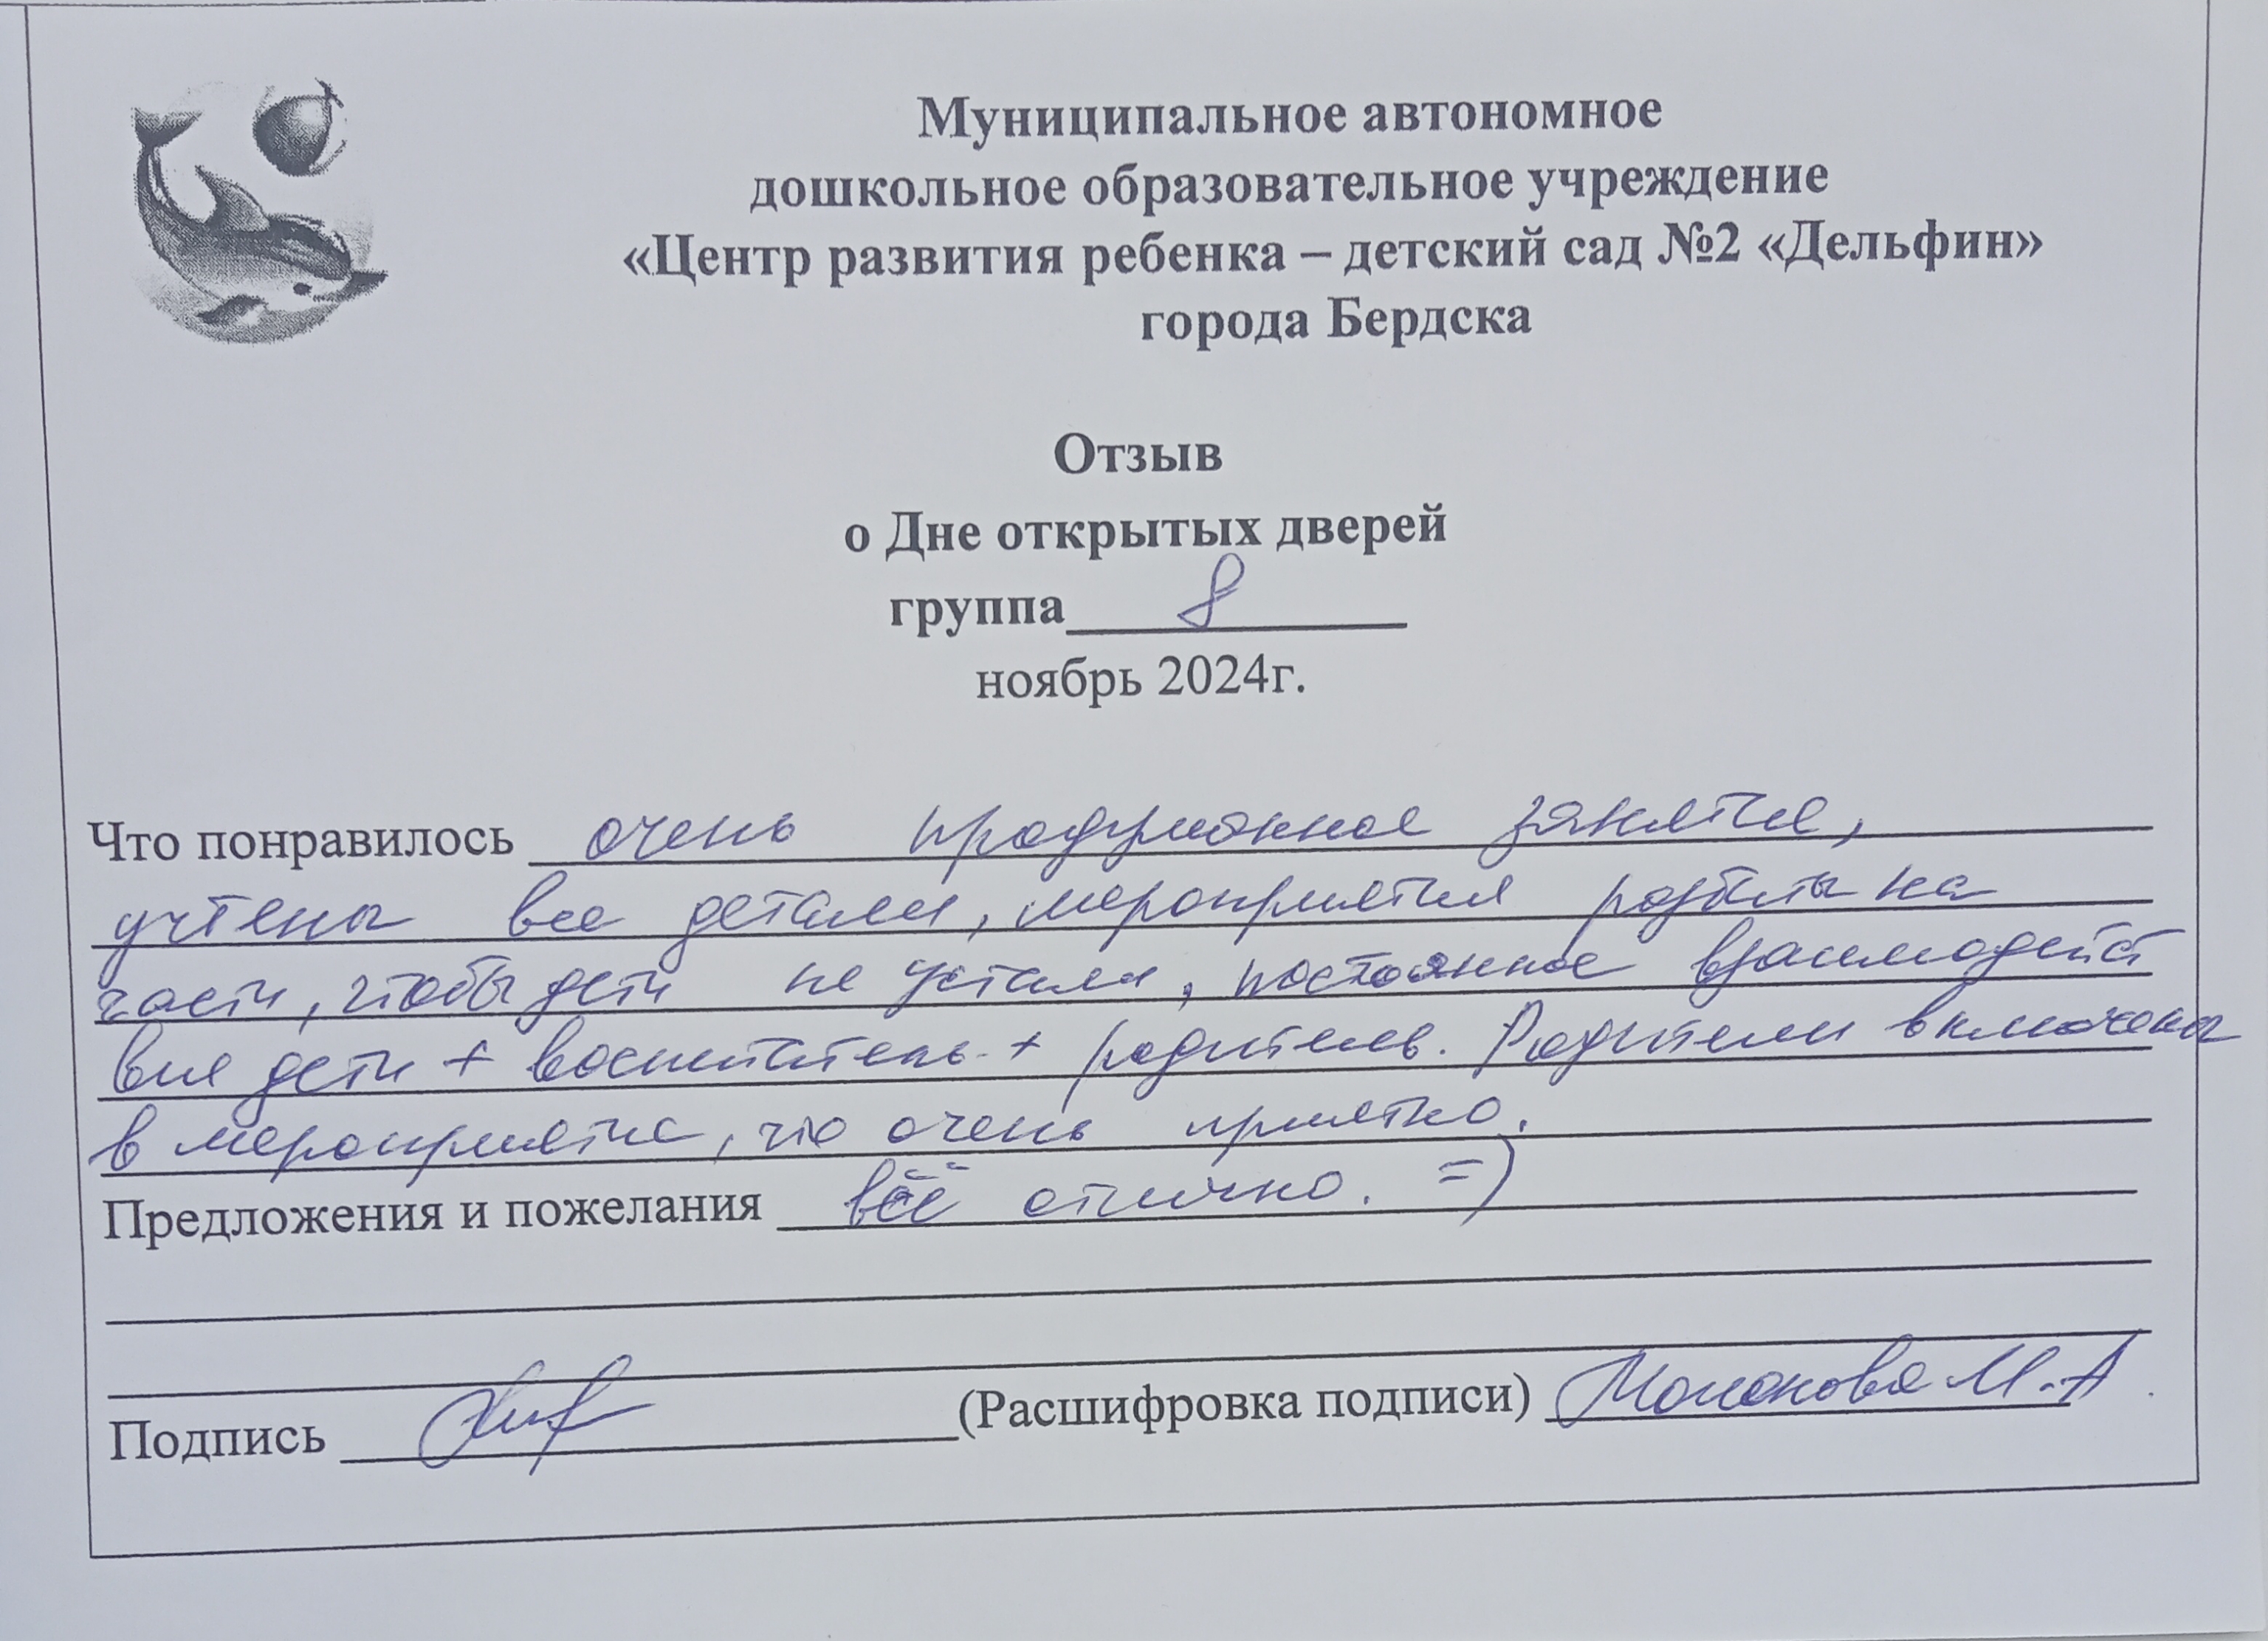 Муниципальное автономное
дошкольное образовательное учреждение
«Центр развития ребенка – детский сад №2 «Дельфин»
города Бердска
Отзыв
о Дне открытых дверей
группа 8
ноябрь 2024г.
Что понравилось очень продуманное занятие,
учтены все детали, мероприятия разбиты на
части, чтобы дети не устали, постоянное взаимодейст
вия дети + воспитатель + родитель. Родители включены
в мероприятие, что очень приятно.
Предложения и пожелания всё отлично. =)
Подпись (Расшифровка подписи) М.А.